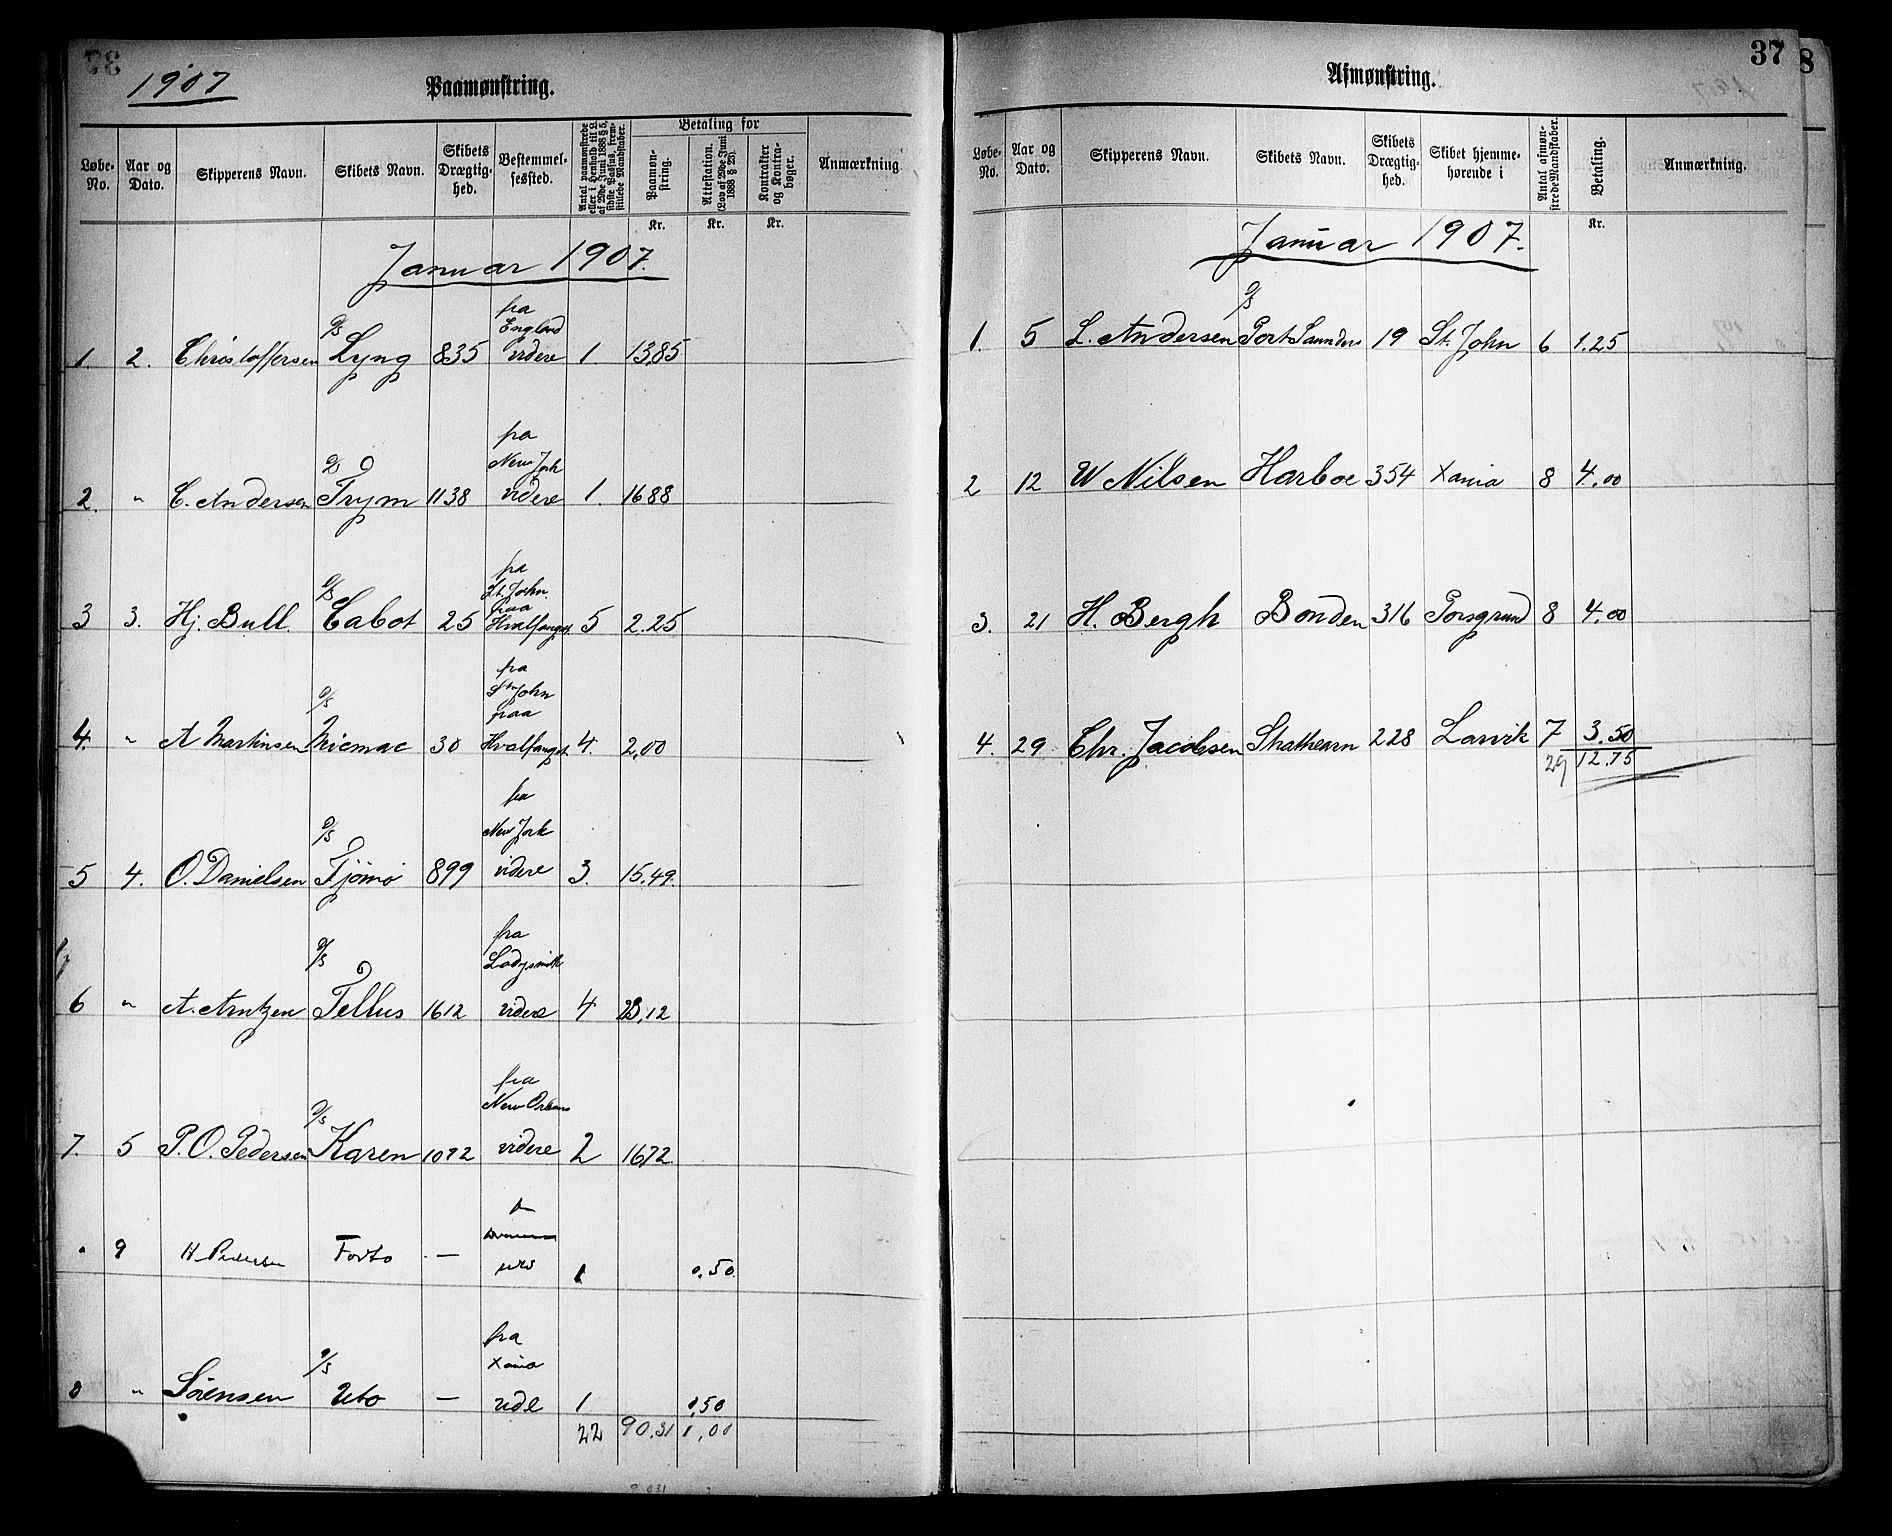 1907
Paamønstring.
Løbe-No.	Aar og Dato.	Skipperens Navn.	Skibets Navn.	Skibets Drægtig-hed.	Bestemmel-sessted.	Antal paamønstrede eller i Henhold til L. af 29de Juni 1888 § 5, sidste Passus, frem-stillede Mandskaber.	Betaling for	Paamøn-string.	Attestation. (Lov af 29de Juni 1888 § 23).	Kontrakter og Kontra-bøger.	Anmærkning
Kr.	Kr.	Kr.
Januar 1907.
1.	2.	Christoffersen	D/S Lyng	835	fra England videre	1.	13,85
2.	"	C. Andersen	D/S Trym	1138	fra New York videre	1.	16 88
3	3.	Hj. Bull.	D/S Cabot	25	fra St. John paa Hvalfangst	5	2.25
4.	"	A Martinsen	D/S Micmac	30	fra St John paa Hvalfangst	4.	2,00
5	4.	O. Danielsen	D/S Tjömö	899	fra New York videre	3.	15.49.
6	"	A. Arntzen	D/S Tellus	1612	fra Ladysmith videre	4	23,12
7.	5	P. O. Pedersen	D/S Karen	1072	fra New Orleans videre	2	16,72
"	9	H Pedersen	Forto	—	1	0,50
8	"	Sörensen	D/S Uto	—	fra Xania	1	0,50
22	90.31	1,00
37
8
Afmønstring.
Løbe-No.	Aar og Dato.	Skipperens Navn.	Skibets Navn.	Skibets Drægtig-hed.	Skibet hjemme-hørende i	Antal afmøn-strede Mandskaber.	Betaling.	Anmærkning.
Kr.
Januar 1907.
1.	5	L. Andersen	D/S Port Saunders	19	St. John	6	1.25
2	12	W Nilsen	Harboe	354	Xania	8	4,00
3.	21	H. Bergh	Bonden	316	Porsgrund	8	4,00
4.	29	Chr. Jacobsen	228	Larvik	7	3.50
29	12.75